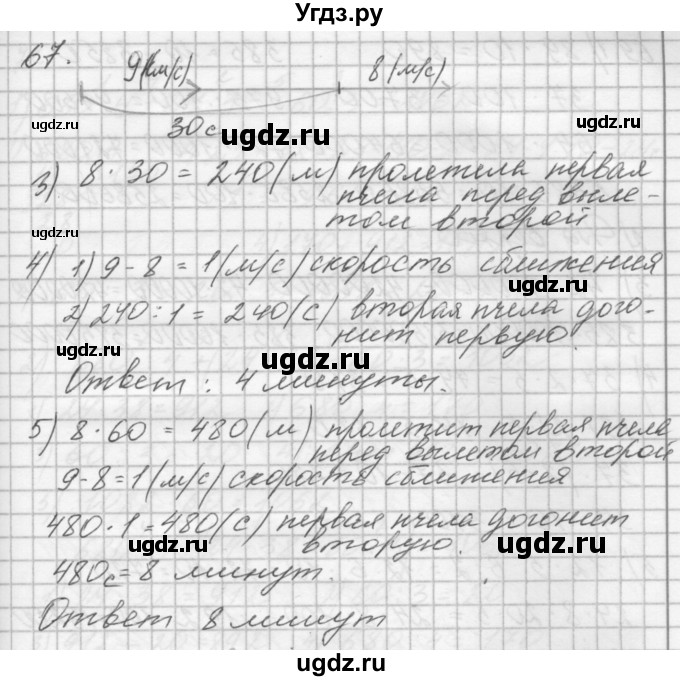 Угдз.ру
67.
9(км/с) 8(м/с)
30с ugdz.ru
ugdz.ru ugdz.ru
3) 8·30 = 240(м) пролетела первая
пчела перед выле-
том второй
ugdz.ru ugdz.ru
4) 1) 9-8 = 1(м/с) скорость сближения
ugdz.ru
2) 240:1 = 240(с) вторая пчела дого-
нит первую.
ugdz.ru ugdz.ru ugdz.ru
Ответ: 4 минуты.
5) 8·60 = 480(м) пролетит первая пчела
перед вылетом второй
ugdz.ru ugdz.ru
9-8=1(м/с) скорость сближения
ugdz.ru
480·1=480(с) первая пчела догонит
вторую.
ugdz.ru ugdz.ru
480с=8 минут.
Ответ 8 минут
ugdz.ru
ugdz.ru